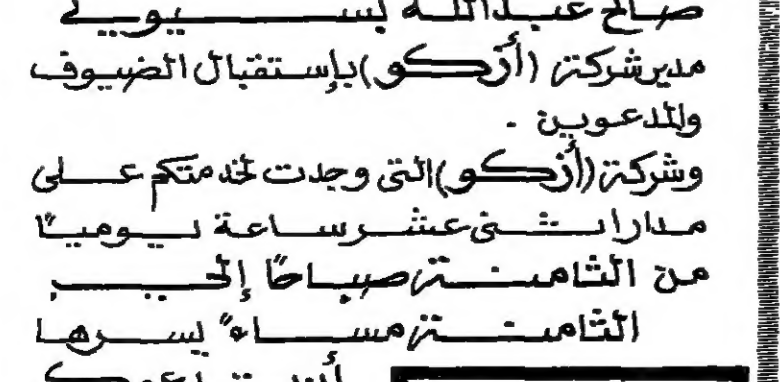 صالح عبدالله بسيوني
مدير شركة (أزكو) بإستقبال الضيوف
والمدعوين .
وشركة (أزكو) التى وجدت لخدمتكم على
مدار اثنى عشر ساعة يوميًا
من الثامنة صباحًا إلى
الثامنة مساءً يسرها